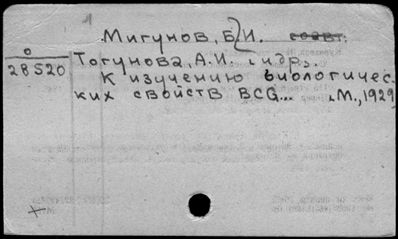 Мигунов, Б.И. соавт.
О
28520
Тогунова, А.И. и др.
К изучению биологичес-
ких свойств BCG... М., 1929